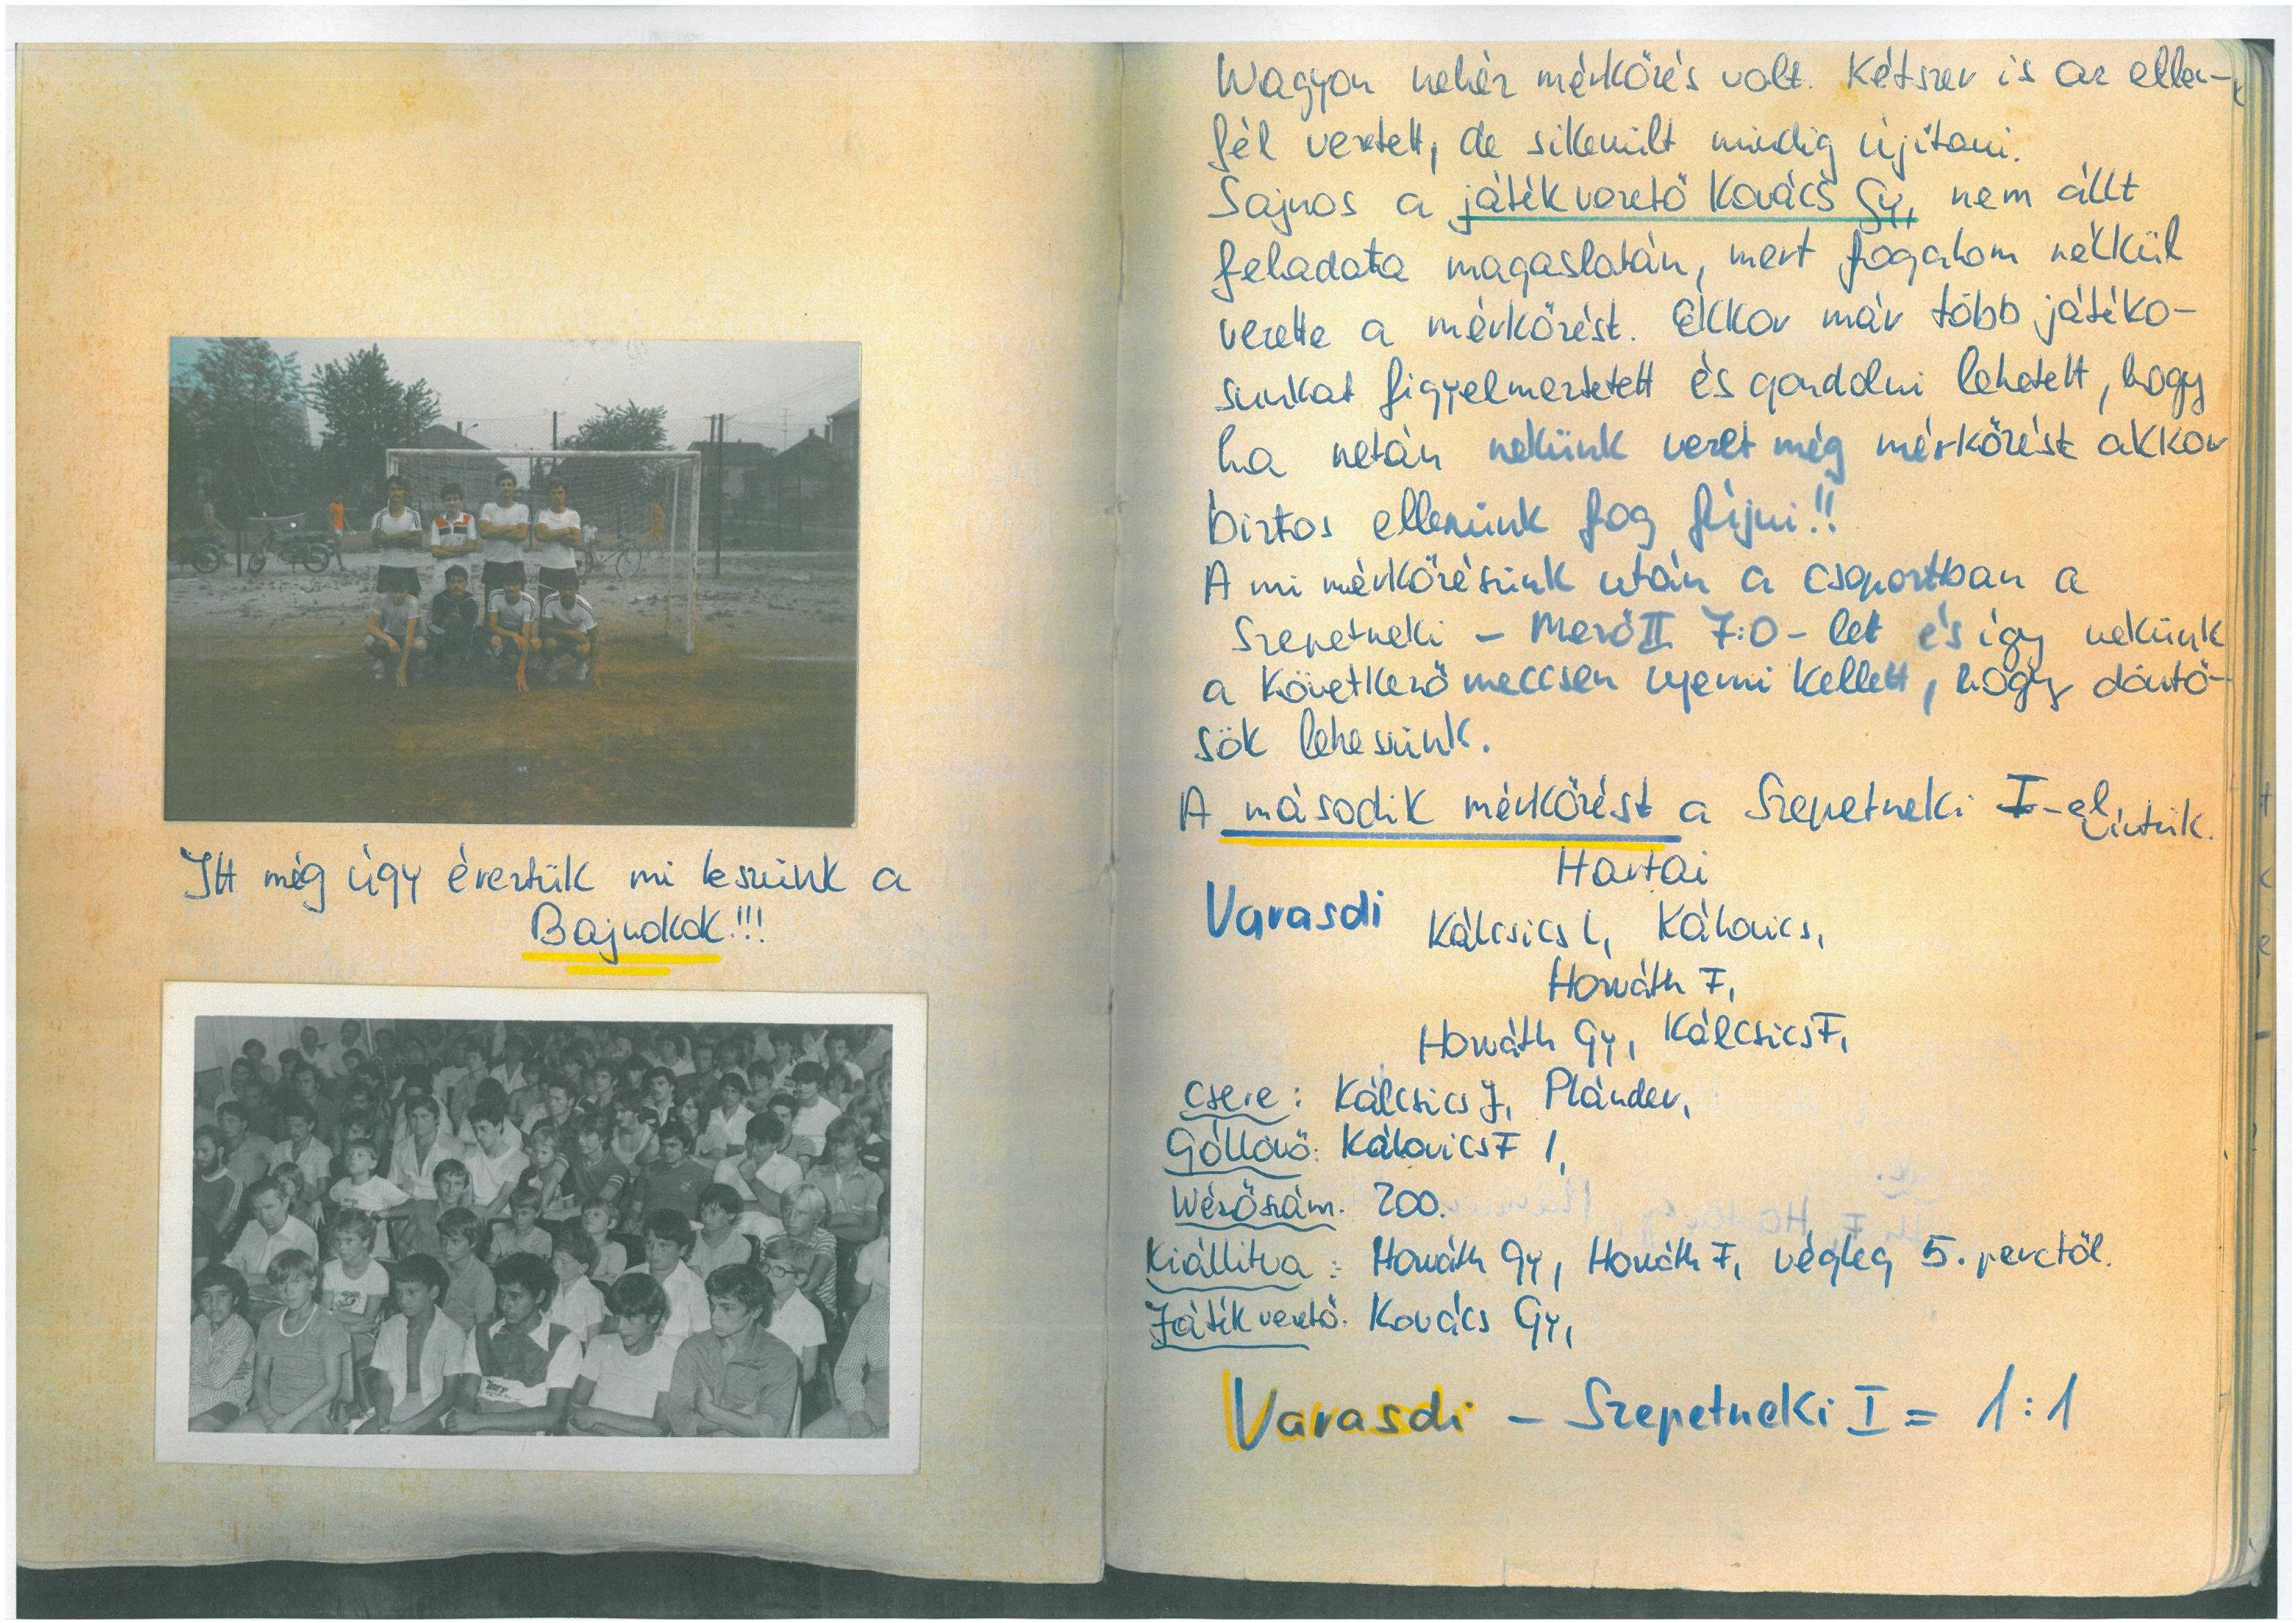 Itt még úgy éreztük mi leszünk a
Bajnokok!!!
Nagyon nehéz mérkőzés volt. Kétszer is az ellen-
fél vezetett, de sikerült mindig újítani.
Sajnos a játékvezető Kovács Gy, nem állt
feladata magaslatán, mert fogalom nélkül
vezette a mérkőzést. Ekkor már több játéko-
sunkat figyelmeztetett és gondolni lehetett, hogy
ha netán nekünk vezet még mérkőzést akkor
biztos ellenünk fog fújni!!
A mi mérkőzésünk után a csoportban a
Szepetneki - Mező II 7:0 - lett és így nekünk
a következő meccsen nyerni kellett, hogy döntő-
sök lehessünk.
A második mérkőzést a Szepetneki I-el vívtuk.
Hartai
Varasdi Kálcsics L, Kálovics,
Horváth F,
Horváth Gy, Kálcsics F,
Csere: Kálcsics J, Plánder,
Góllövő: Kálovics F 1,
Nézőszám. 200.
Kiállítva: Horváth Gy, Horváth F, végleg 5. perctől.
Játékvezető: Kovács Gy,
Varasdi - Szepetneki I = 1:1